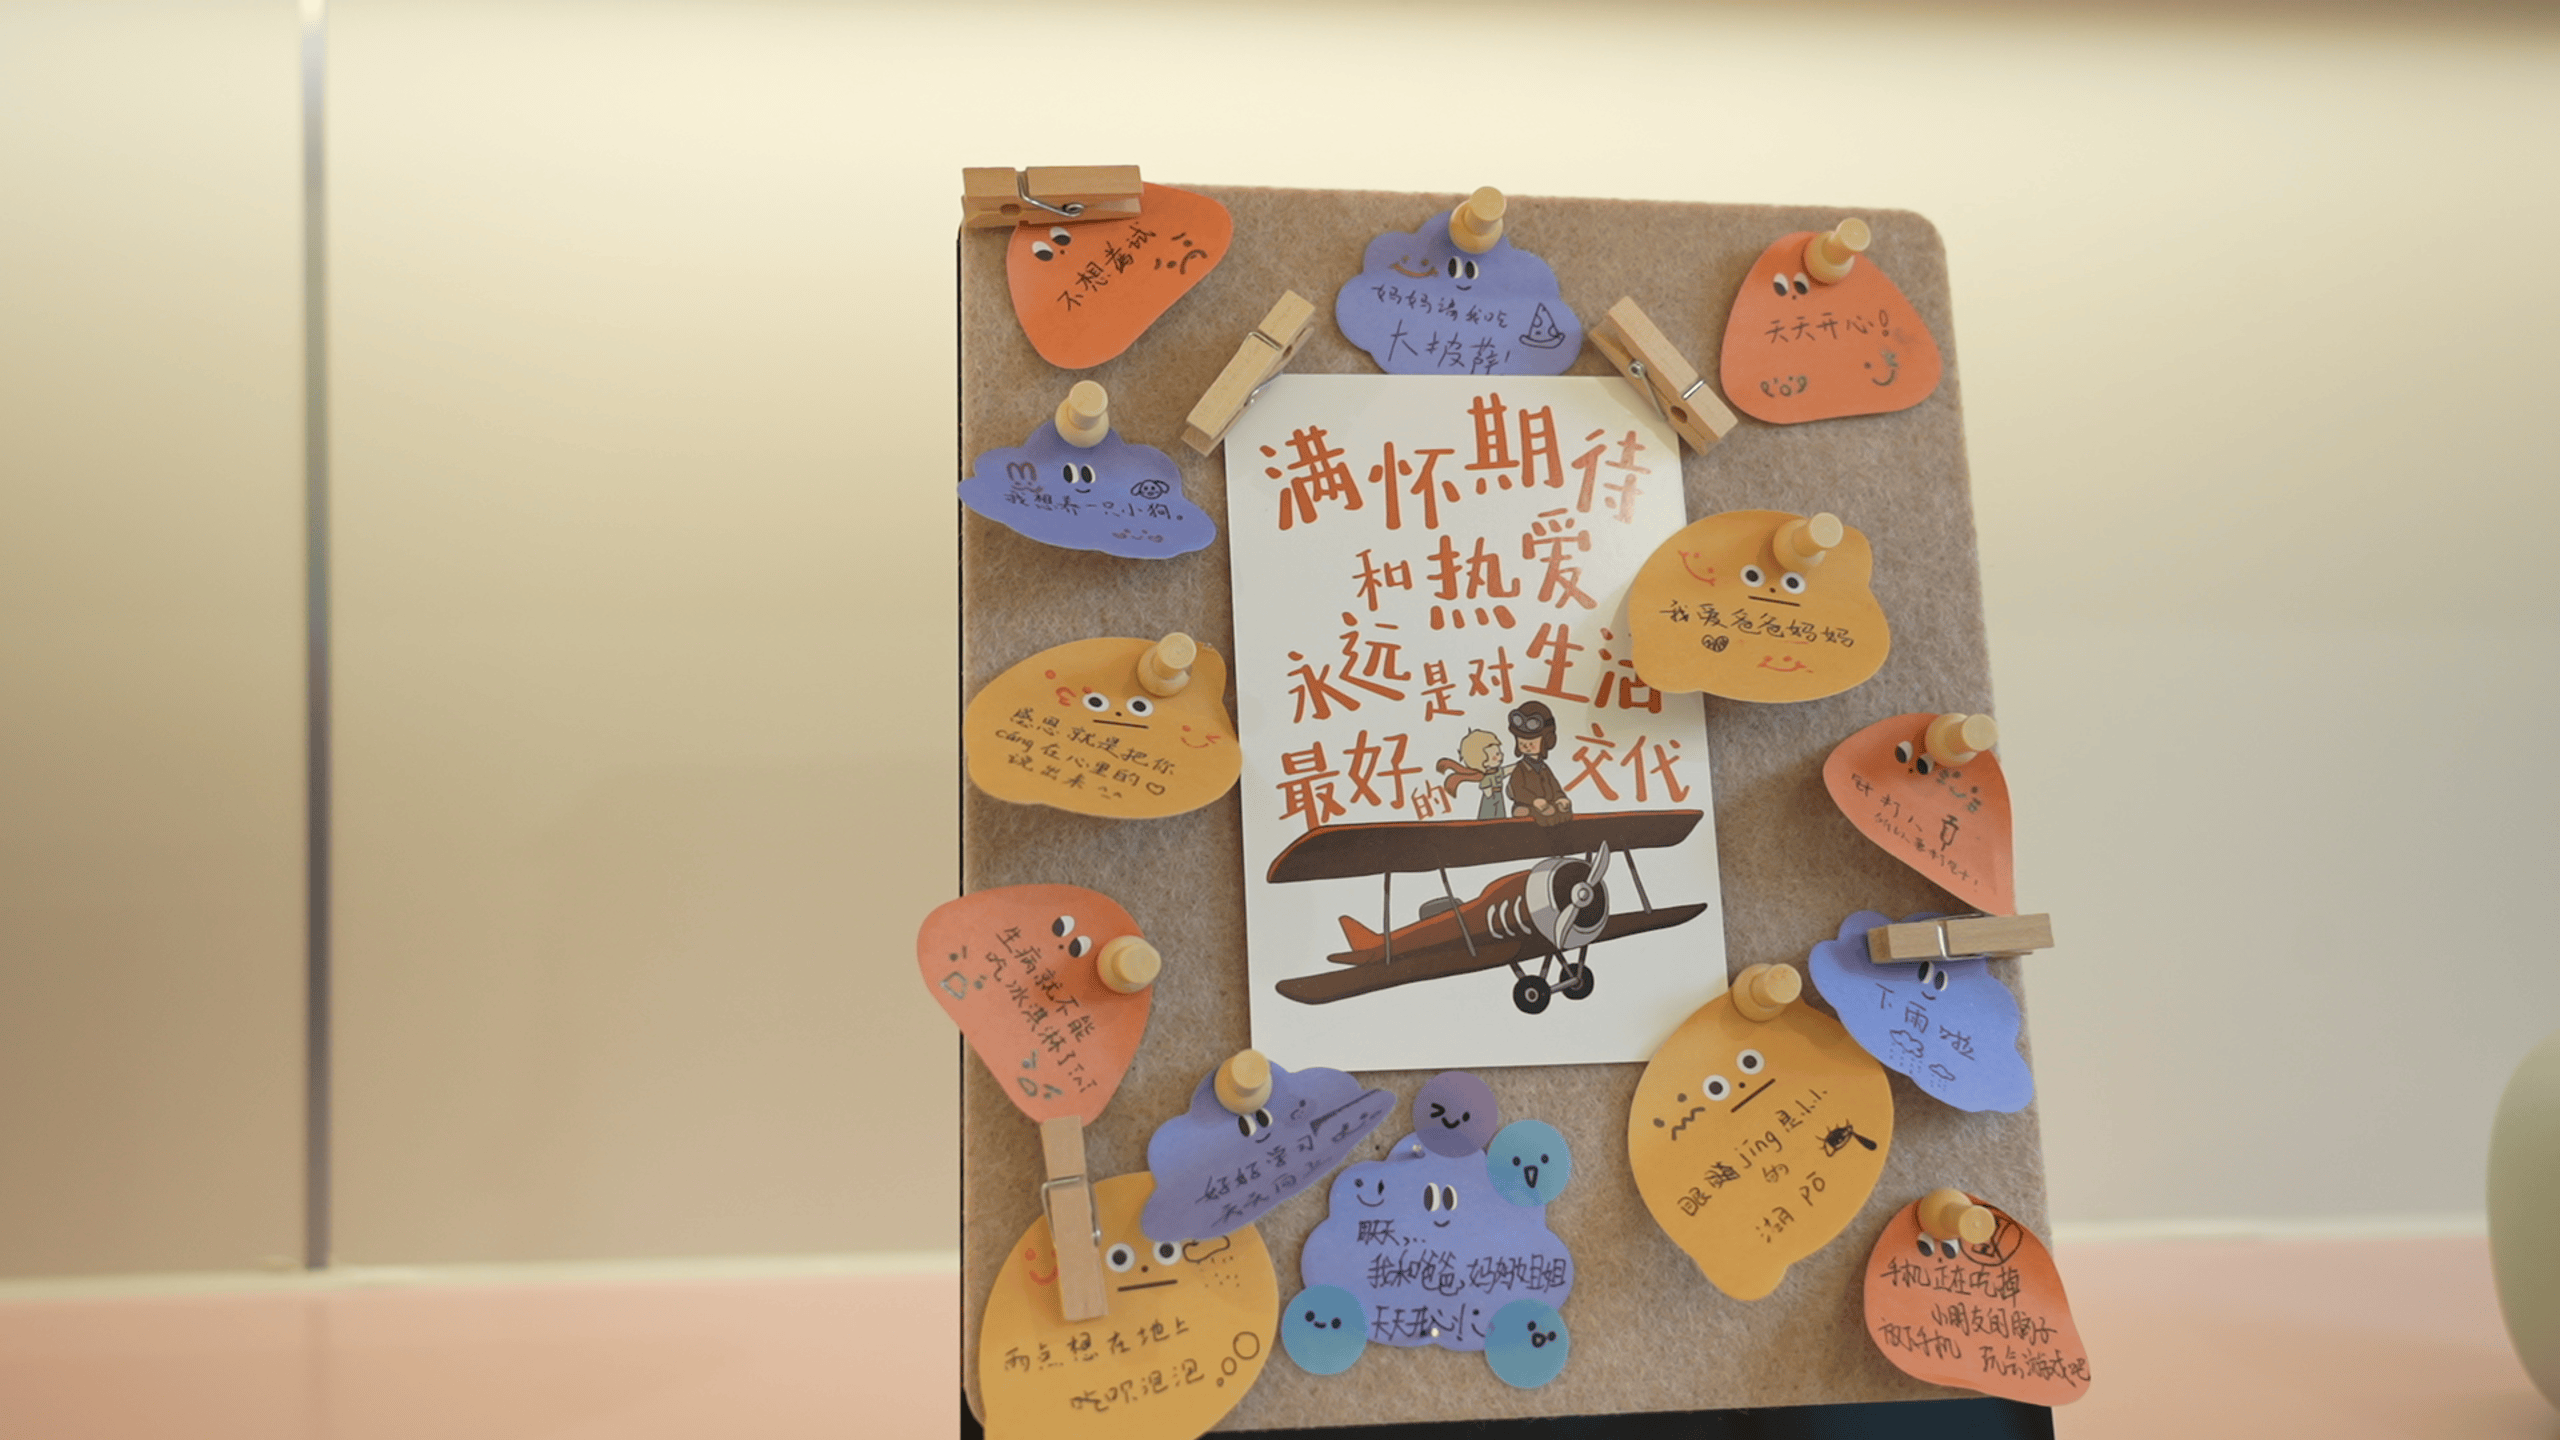 不想考试
妈妈请我吃
大披萨!
天天开心!
我想养一只小狗。
满怀期待
和热爱
永远是对生活
最好的交代
我爱爸爸妈妈
感恩就是把你
cáng在心里的♡
说出来^_^
打人
生病就不能
吃冰淇淋了
下雨啦
好好学习
天天向上
眼jīng是小小
的
湖pō
明天,..
我和爸爸,妈妈,姐姐
天天开心!
雨点想在地上
吹泡泡
手机正在吃掉
小朋友的脑子
放下手机 玩会游戏吧